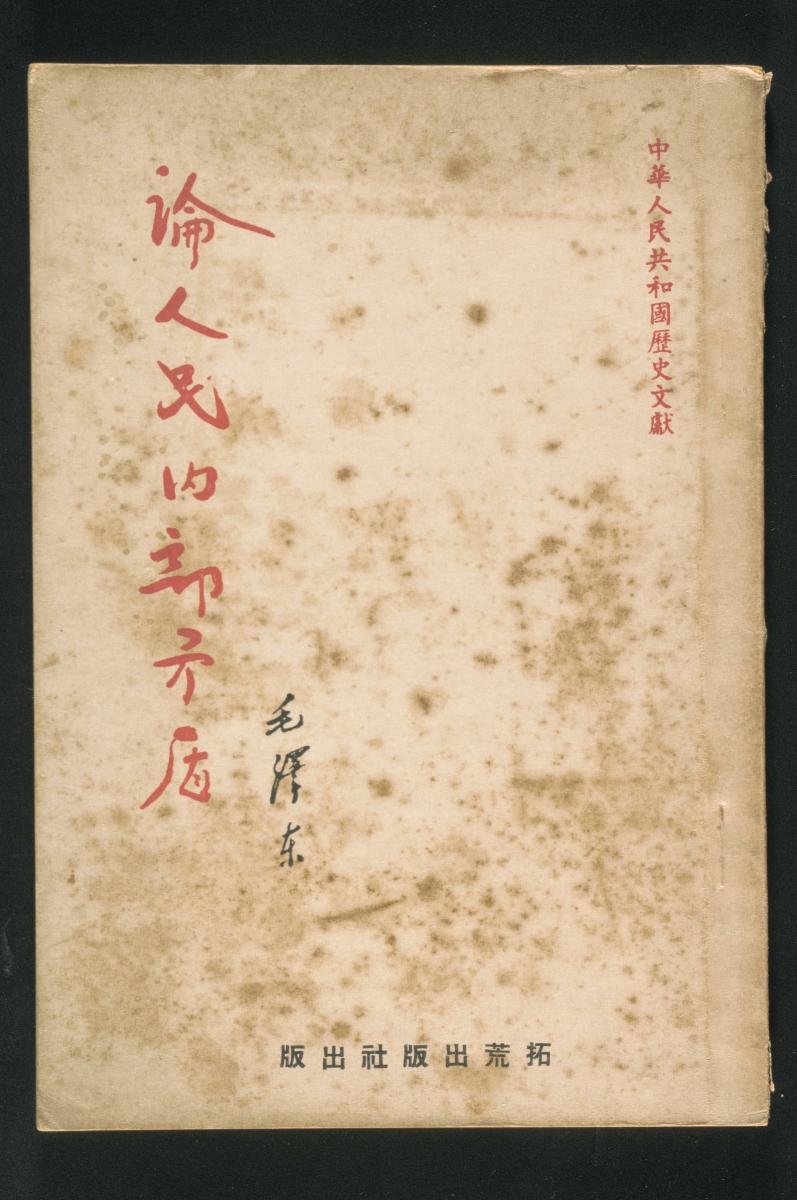 中華人民共和國歷史文獻
論人民内部矛盾
毛澤东
拓荒出版社出版